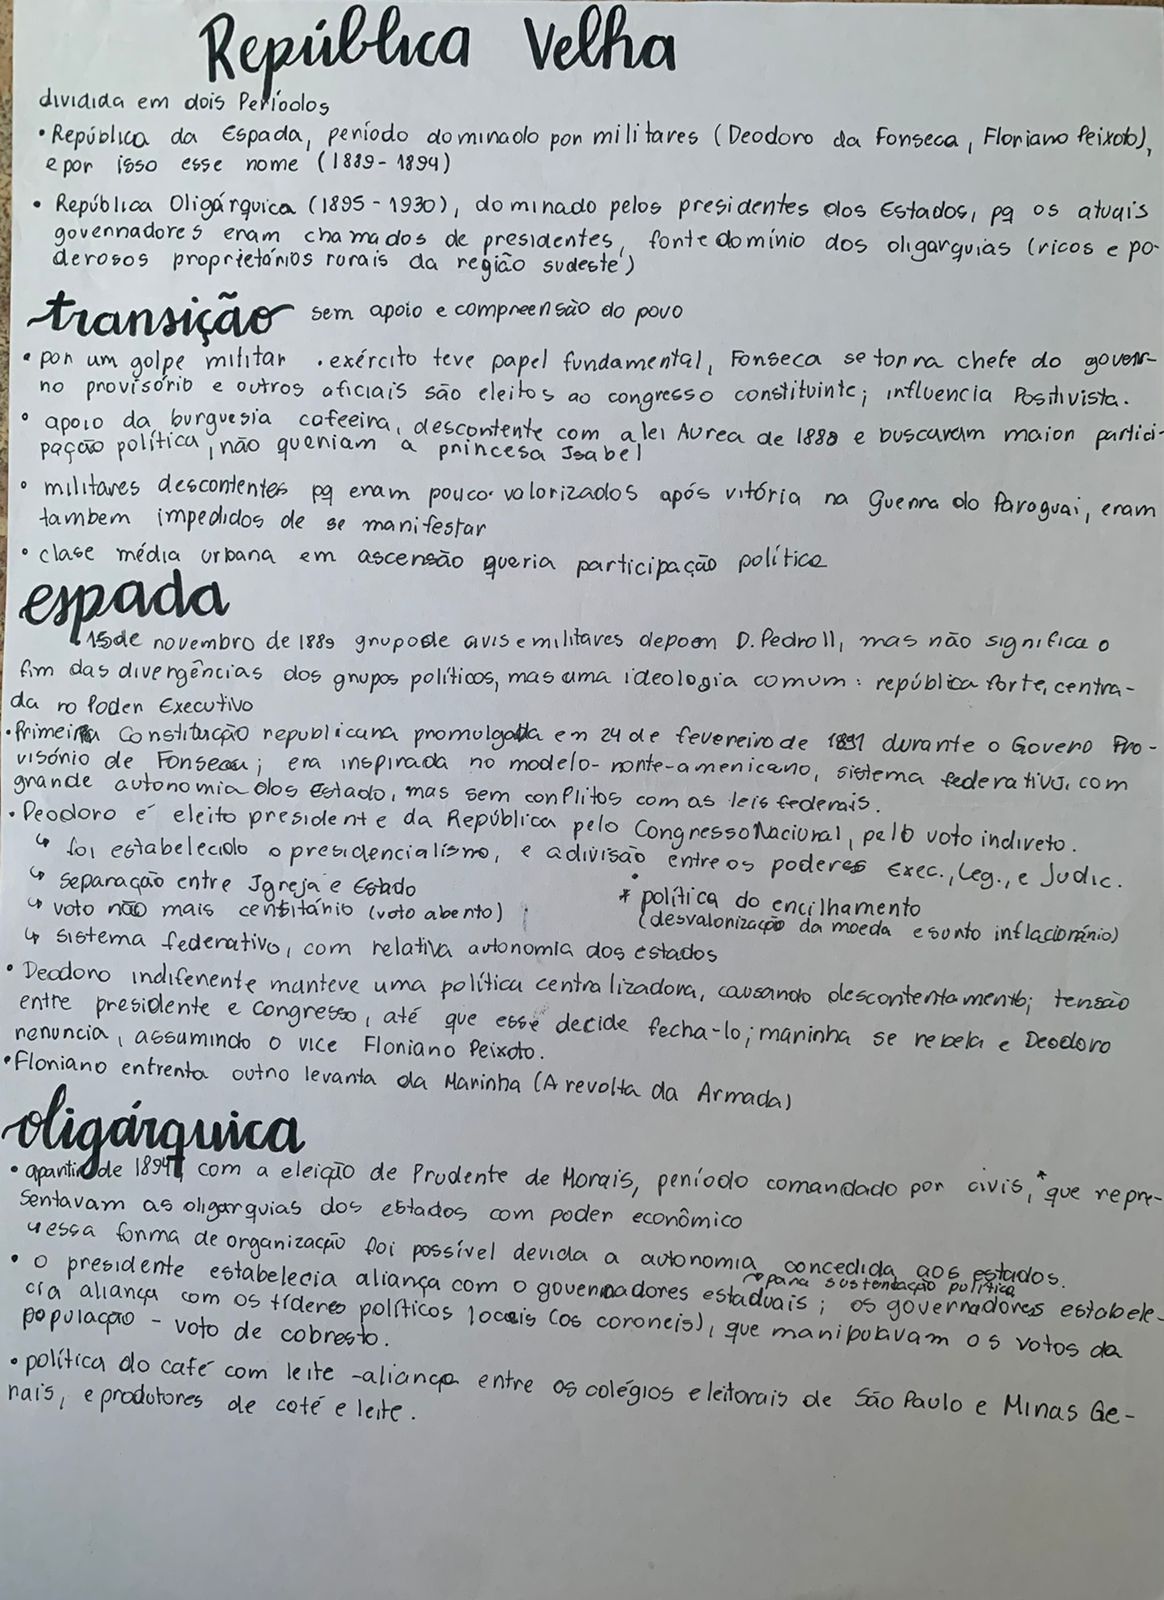 República Velha
dividida em dois Períodos
• República da Espada, período dominado por militares (Deodoro da Fonseca, Floriano Peixoto),
e por isso esse nome (1889-1894)
• República Oligárquica (1895-1930), dominado pelos presidentes dos Estados, pq os atuais
governadores eram chamados de presidentes, forte domínio dos oligarquias (ricos e po-
derosos proprietários rurais da região sudeste)
transição sem apoio e compreensão do povo
• por um golpe militar • exército teve papel fundamental, Fonseca se torna chefe do gover-
no provisório e outros oficiais são eleitos ao congresso constituinte; influencia Positivista.
• apoio da burguesia cafeeira, descontente com a lei Aurea de 1888 e buscavam maior partici-
pação política, não queriam a princesa Isabel
• militares descontentes pq eram pouco valorizados após vitória na Guerra do Paraguai, eram
tambem impedidos de se manifestar
• clase média urbana em ascensão queria participação política
espada
15 de novembro de 1889 grupo de civis e militares depoem D. Pedro II, mas não significa o
fim das divergências dos grupos políticos, mas uma ideologia comum: república forte, centra-
da no Poder Executivo
• Primeira Constituição republicana promulgada em 24 de fevereiro de 1891 durante o Govero Pro-
visório de Fonseca; era inspirada no modelo-norte-americano, sistema federativo, com
grande autonomia dos Estado, mas sem conflitos com as leis federais.
• Deodoro é eleito presidente da República pelo Congresso Nacional, pelo voto indireto.
↳ foi estabelecido o presidencialismo, e a divisão entre os poderes Exec., Leg., e Judic.
↳ separação entre Igreja e Estado
* política do encilhamento
↳ voto não mais censitário (voto aberto)
(desvalorização da moeda e surto inflacionário)
↳ sistema federativo, com relativa autonomia dos estados
• Deodoro indiferente manteve uma política centralizadora, causando descontentamento; tensão
entre presidente e Congresso, até que esse decide fecha-lo; marinha se rebela e Deodoro
renuncia, assumindo o vice Floriano Peixoto.
• Floriano enfrenta outro levanta da Marinha (A revolta da Armada)
oligárquica
• apartir de 1894, com a eleição de Prudente de Morais, período comandado por civis,* que repre-
sentavam as oligarquias dos estados com poder econômico
↳ essa forma de organização foi possível devida a autonomia concedida aos estados.
→ para sustentação política
• o presidente estabelecia aliança com o governadores estaduais; os governadores estabele-
cia aliança com os líderes políticos locais (os coroneis), que manipulavam os votos da
população - voto de cabresto.
• política do café com leite - aliança entre os colégios eleitorais de São Paulo e Minas Ge-
rais, e produtores de café e leite.